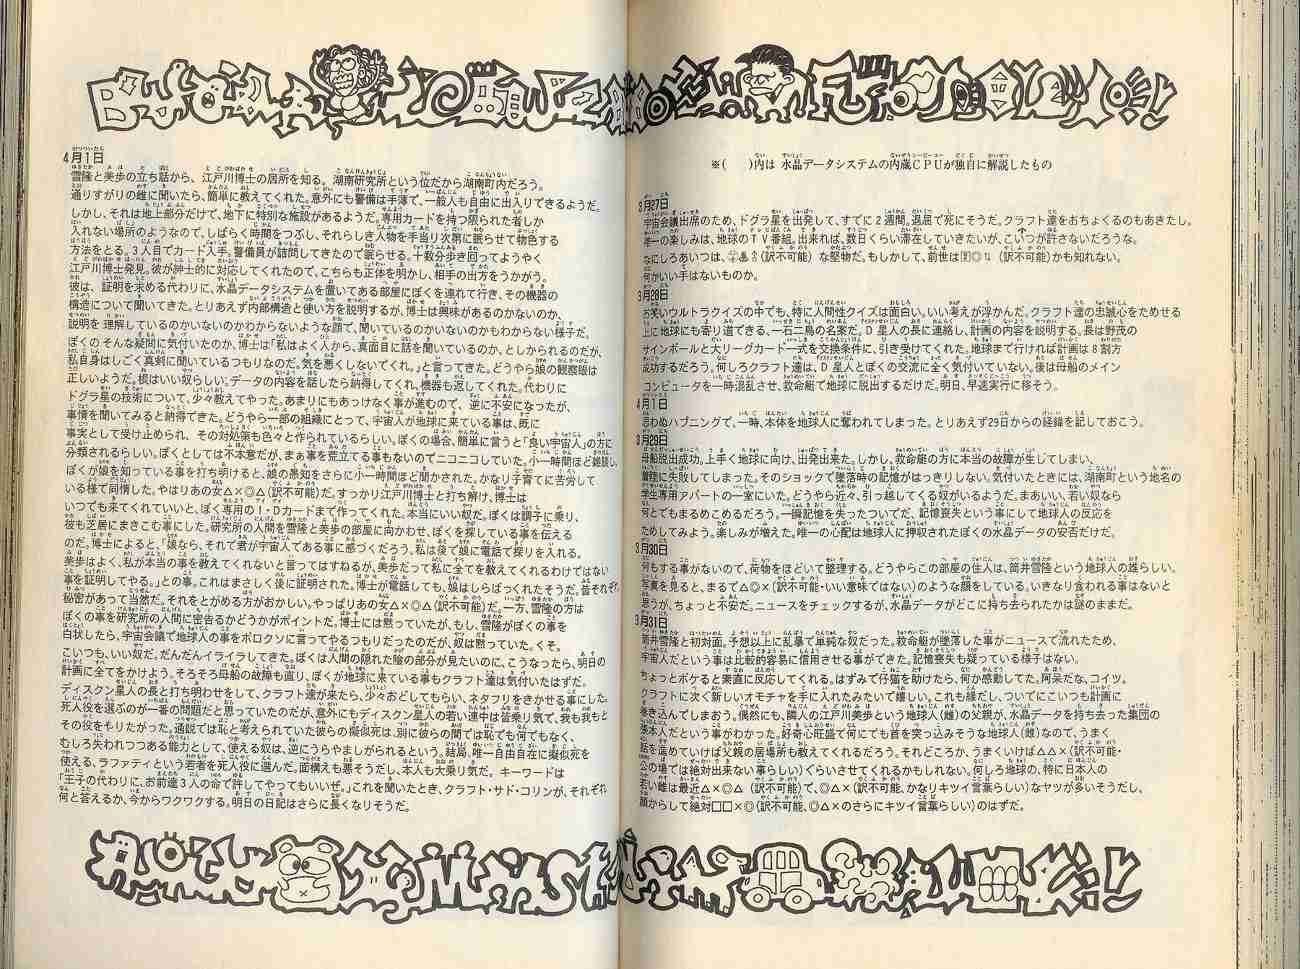 ※(　)内は 水晶データシステムの内蔵CPUが独自に解説したもの
3月27日
宇宙会議出席のため、ドグラ星を出発して、すでに2週間。退屈で死にそうだ。クラフト達をおちょくるのもあきたし。
唯一の楽しみは、地球のTV番組。出来れば、数日くらい滞在していきたいが、こいつが許さないだろうな。
なにしろあいつは、(訳不可能)な堅物だ。もしかして、前世は(訳不可能)かも知れない。
何かいい手はないものか。
3月28日
お笑いウルトラクイズの中でも、特に人間性クイズは面白い。いい考えが浮かんだ。クラフト達の忠誠心をためせる
上に地球にも寄り道できる、一石二鳥の名案だ。D星人の長に連絡し、計画の内容を説明する。長は野茂の
サインボールと大リーグカード一式を交換条件に、引き受けてくれた。地球まで行ければ計画は8割方
成功するだろう。何しろクラフト達は、D星人とぼくの交流に全く気付いていない。後は母船のメイン
コンピュータを一時混乱させ、救命艇で地球に脱出するだけだ。明日、早速実行に移そう。
4月1日
思わぬハプニングで、一時、本体を地球人に奪われてしまった。とりあえず29日からの経緯を記しておこう。
3月29日
母船脱出成功。上手く地球に向け、出発出来た。しかし、救命艇の方に本当の故障が生じてしまい、
着陸に失敗してしまった。そのショックで墜落時の記憶がはっきりしない。気付いたときには、湖南町という地名の
学生専用アパートの一室にいた。どうやら近々、引っ越してくる奴がいるようだ。まあいい、若い奴なら
何とでもまるめこめるだろう。一瞬記憶を失ったついでだ、記憶喪失という事にして地球人の反応を
ためしてみよう。楽しみが増えた。唯一の心配は地球人に押収されたぼくの水晶データの安否だけだ。
3月30日
何もする事がないので、荷物をほどいて整理する。どうやらこの部屋の住人は、筒井雪隆という地球人の雄らしい。
写真を見ると、まるで△◎×(訳不可能・いい意味ではない)のような顔をしている。いきなり食われる事はないと
思うが、ちょっと不安だ。ニュースをチェックするが、水晶データがどこに持ち去られたかは謎のままだ。
3月31日
筒井雪隆と初対面。予想以上に乱暴で単純な奴だった。救命艇が墜落した事がニュースで流れたため、
宇宙人だという事は比較的容易に信用させる事ができた。記憶喪失も疑っている様子はない。
ちょっとボケると素直に反応してくれる。はずみで仔猫を助けたら、何か感動してた。阿呆だな、コイツ。
クラフトに次ぐ新しいオモチャを手に入れたみたいで嬉しい。これも縁だし、ついでにこいつも計画に
巻き込んでしまおう。偶然にも、隣人の江戸川美歩という地球人(雌)の父親が、水晶データを持ち去った集団の
張本人だという事がわかった。好奇心旺盛で何にでも首を突っ込みそうな地球人(雌)なので、うまく
話を進めていけば父親の居場所も教えてくれるだろう。それどころか、うまくいけば△△×(訳不可能・
公の場では絶対出来ない事らしい)ぐらいさせてくれるかもしれない。何しろ地球の、特に日本人の
若い雌は最近△×◎△(訳不可能)で、◎△×(訳不可能、かなりキツイ言葉らしい)なヤツが多いそうだし、
顔からして絶対□□×◎(訳不可能、◎△×のさらにキツイ言葉らしい)のはずだ。
4月1日
雪隆と美歩の立ち話から、江戸川博士の居所を知る。湖南研究所という位だから湖南町内だろう。
通りすがりの雌に聞いたら、簡単に教えてくれた。意外にも警備は手薄で、一般人も自由に出入りできるようだ。
しかし、それは地上部分だけで、地下に特別な施設があるようだ。専用カードを持つ限られた者しか
入れない場所のようなので、しばらく時間をつぶし、それらしき人物を手当り次第に眠らせて物色する
方法をとる。3人目でカード入手。警備員が詰問してきたので眠らせる。十数分歩き回ってようやく
江戸川博士発見。彼が紳士的に対応してくれたので、こちらも正体を明かし、相手の出方をうかがう。
彼は、証明を求める代わりに、水晶データシステムを置いてある部屋にぼくを連れて行き、その機器の
構造について聞いてきた。とりあえず内部構造と使い方を説明するが、博士は興味があるのかないのか、
説明を理解しているのかいないのかわからないような顔で、聞いているのかいないのかもわからない様子だ。
ぼくのそんな疑問に気付いたのか、博士は「私はよく人から、真面目に話を聞いているのか、としかられるのだが、
私自身はしごく真剣に聞いているつもりなのだ。気を悪くしないでくれ。」と言ってきた。どうやら娘の観察眼は
正しいようだ。根はいい奴らしい。データの内容を話したら納得してくれ、機器も返してくれた。代わりに
ドグラ星の技術について、少々教えてやった。あまりにもあっけなく事が進むので、逆に不安になったが、
事情を聞いてみると納得できた。どうやら一部の組織にとって、宇宙人が地球に来ている事は、既に
事実として受け止められ、その対処策も色々と作られているらしい。ぼくの場合、簡単に言うと「良い宇宙人」の方に
分類されるらしい。ぼくとしては不本意だが、まぁ事を荒立てる事もないのでニコニコしていた。小一時間ほど雑談し、
ぼくが娘を知っている事を打ち明けると、娘の愚知をさらに小一時間ほど聞かされた。かなり子育てに苦労して
いる様で同情した。やはりあの女△×◎△(訳不可能)だ。すっかり江戸川博士と打ち解け、博士は
いつでも来てくれていいと、ぼく専用のI・Dカードまで作ってくれた。本当にいい奴だ。ぼくは調子に乗り、
彼も芝居にまきこむ事にした。研究所の人間を雪隆と美歩の部屋に向かわせ、ぼくを探している事を伝える
のだ。博士によると、「娘なら、それで君が宇宙人である事に感づくだろう、私は後で娘に電話で探りを入れる。
美歩はよく、私が本当の事を教えてくれないと言ってはすねるが、美歩だって私に全てを教えてくれるわけではない
事を証明してやる。」との事。これはまさしく後に証明された。博士が電話しても、娘はしらばっくれたそうだ。皆それぞれ
秘密があって当然だ。それをとがめる方がおかしい。やっぱりあの女△×◎△(訳不可能)だ。一方、雪隆の方は
ぼくの事を研究所の人間に密告るかどうかがポイントだ。博士には黙っていたが、もし、雪隆がぼくの事を
白状したら、宇宙会議で地球人の事をボロクソに言ってやるつもりだったのだが、奴は黙っていた。くそ。
こいつも、いい奴だ。だんだんイライラしてきた。ぼくは人間の隠れた陰の部分が見たいのに、こうなったら、明日の
計画に全てをかけよう。そろそろ母船の故障も直り、ぼくが地球に来ている事もクラフト達は気付いたはずだ。
ディスクン星人の長と打ち明わせをして、クラフト達が来たら、少々おどしてもらい、ネタフリをきかせる事にした。
死人役を選ぶのが一番の問題だと思っていたのだが、意外にもディスクン星人の若い連中は皆乗り気で、我も我もと
その役をやりたがった。通説では恥と考えられていた彼らの擬似死は、別に彼らの間では恥でも何でもなく、
むしろ失われつつある能力として、使える奴は、逆にうらやましがられるという。結局、唯一自由自在に擬似死を
使える、ラファティという若者を死人役に選んだ。面構えも悪そうだし、本人も大乗り気だ。キーワードは
「王子の代わりに、お前達3人の命で許してやってもいいぜ。」これを聞いたとき、クラフト・サド・コリンが、それぞれ
何と答えるか、今からワクワクする。明日の日記はさらに長くなりそうだ。